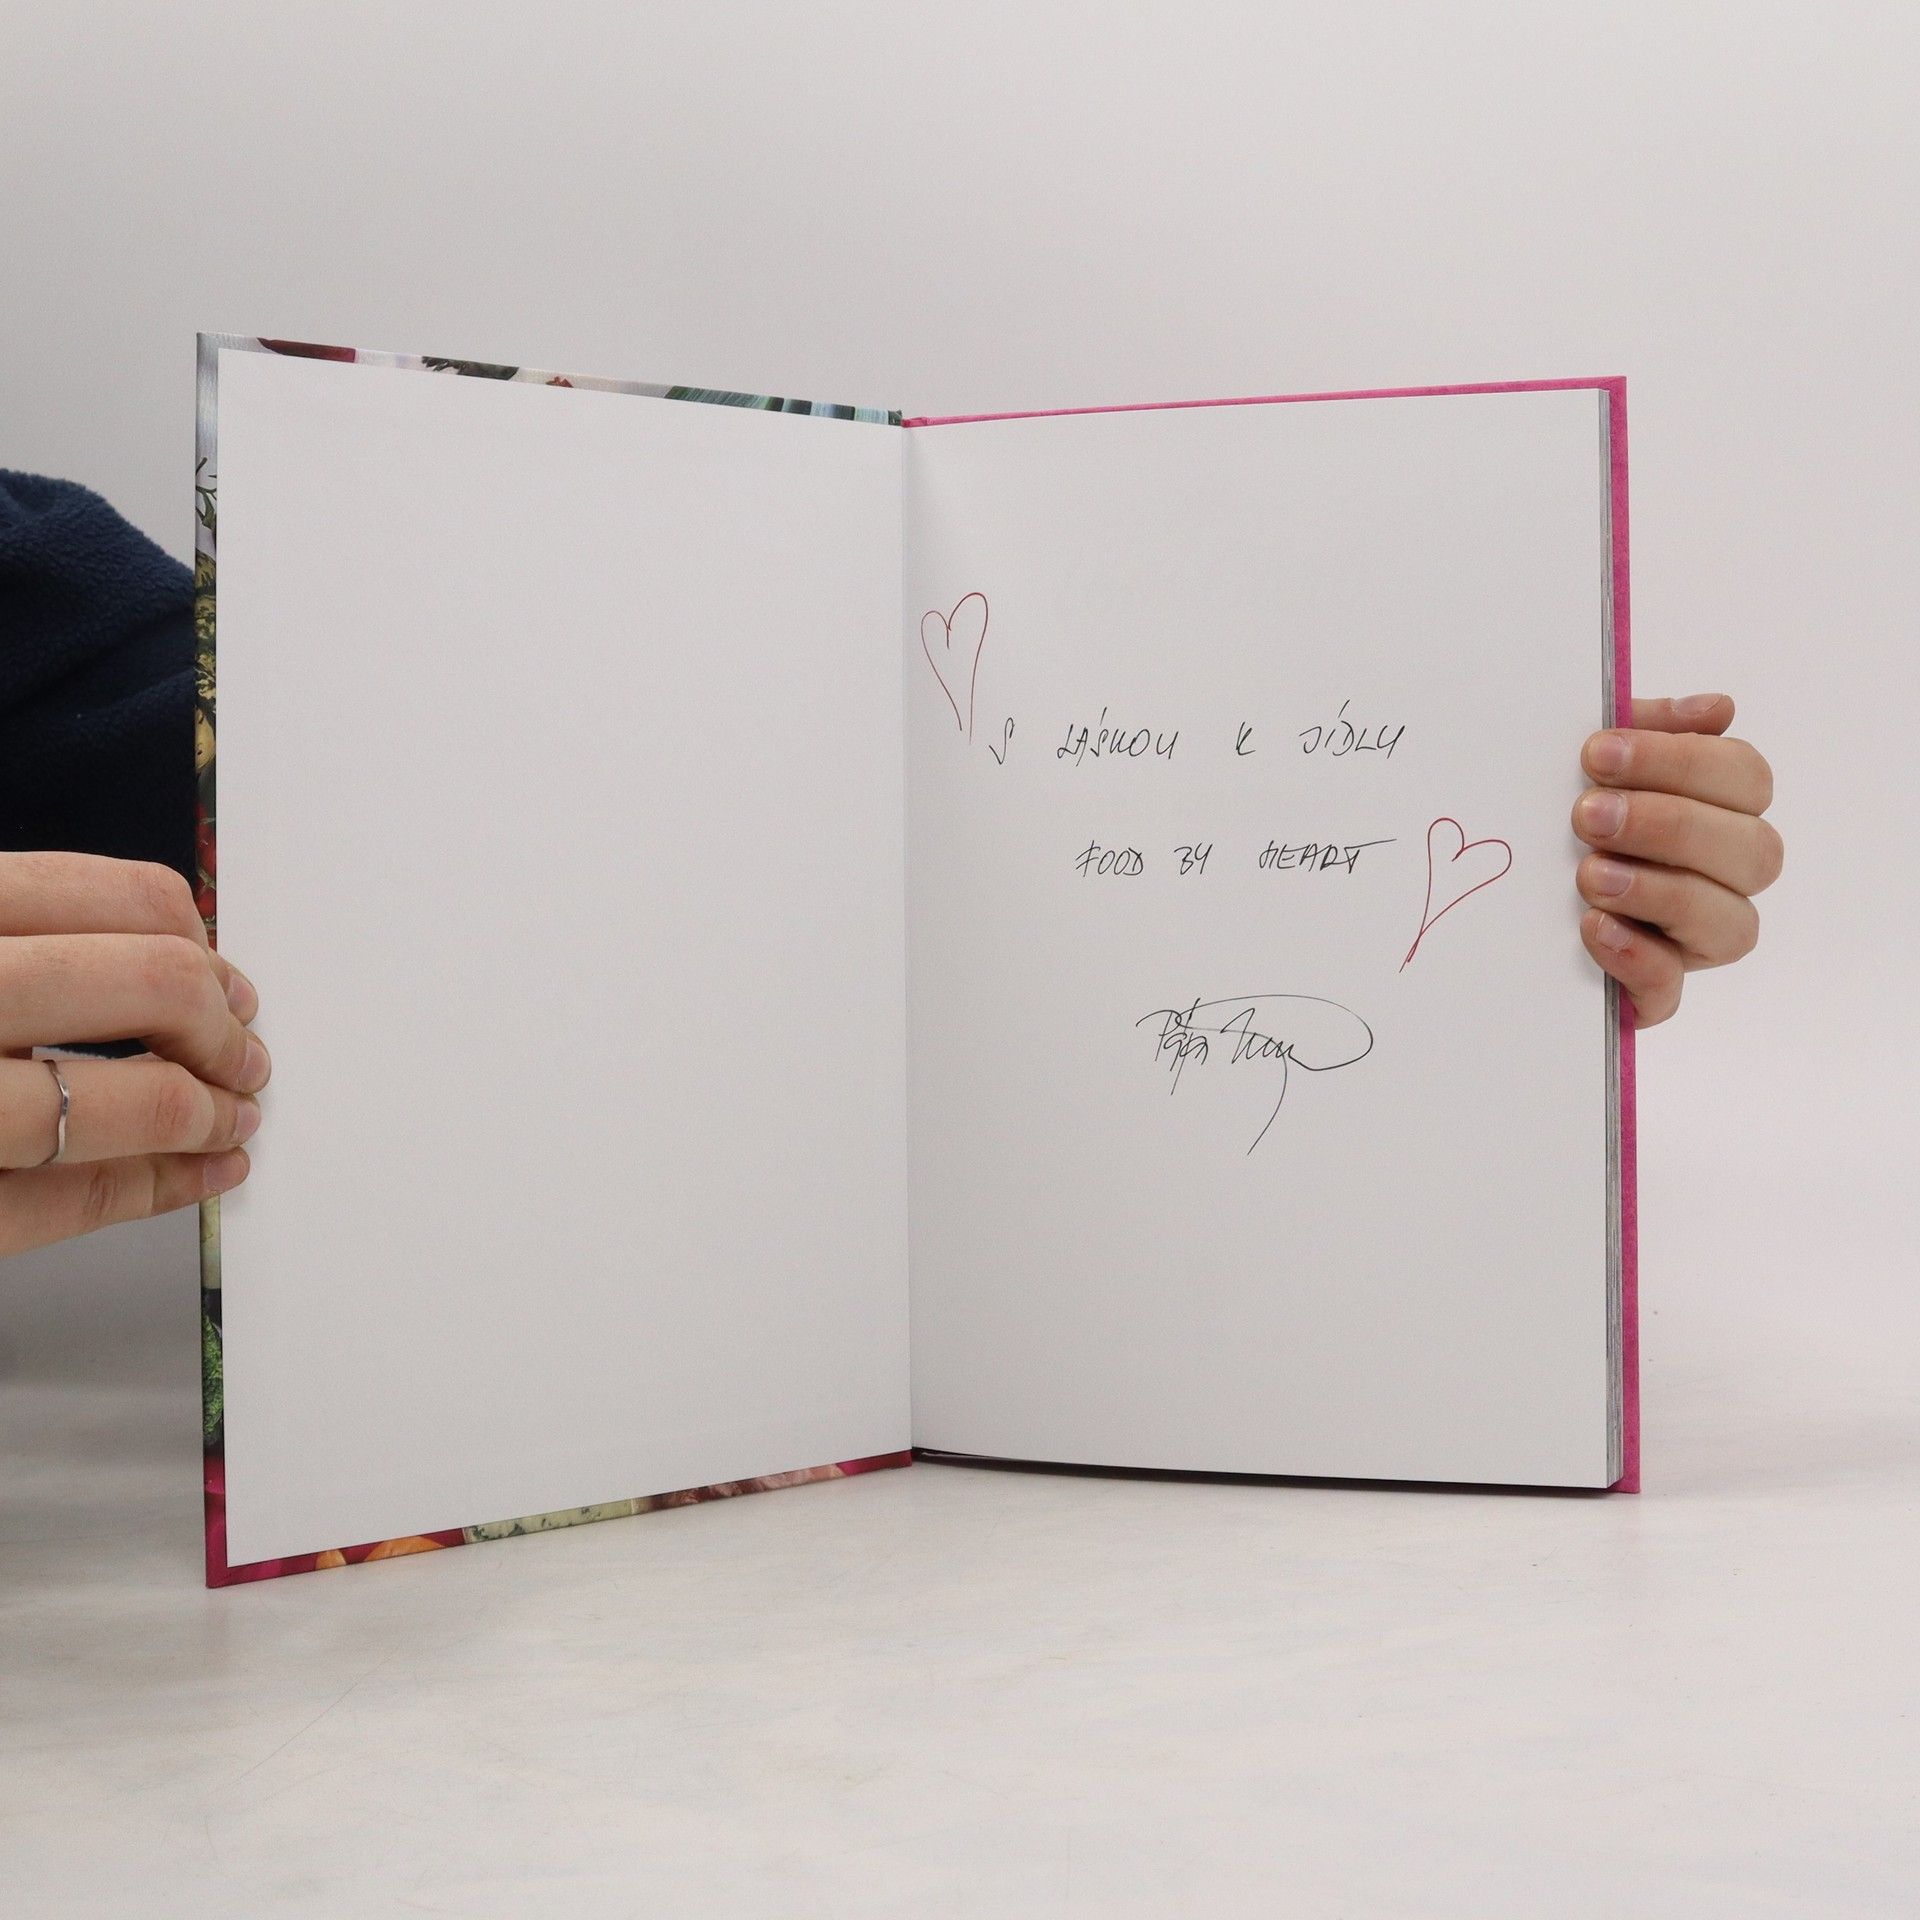 S LÁSKOU K JÍDLU
FOOD BY HEART